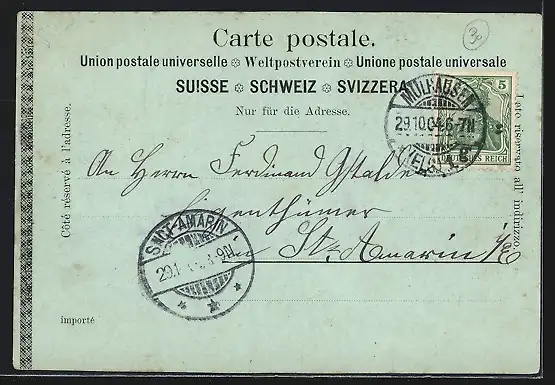 30
Carte postale.
Union postale universelle ※ Weltpostverein ※ Unione postale universale
SUISSE ※ SCHWEIZ ※ SVIZZERA
Nur für die Adresse.
5
DEUTSCHES REICH
MÜLHAUSEN
29.10.04.6-7N
(ELS.)
Côté réservé à l'adresse.
Lato riservato all' indirizzo.
An Herrn Ferdinand Gstalder
Eigenthümer
in St. Amarin
SANCT AMARIN
29.1 4-9N.
importé